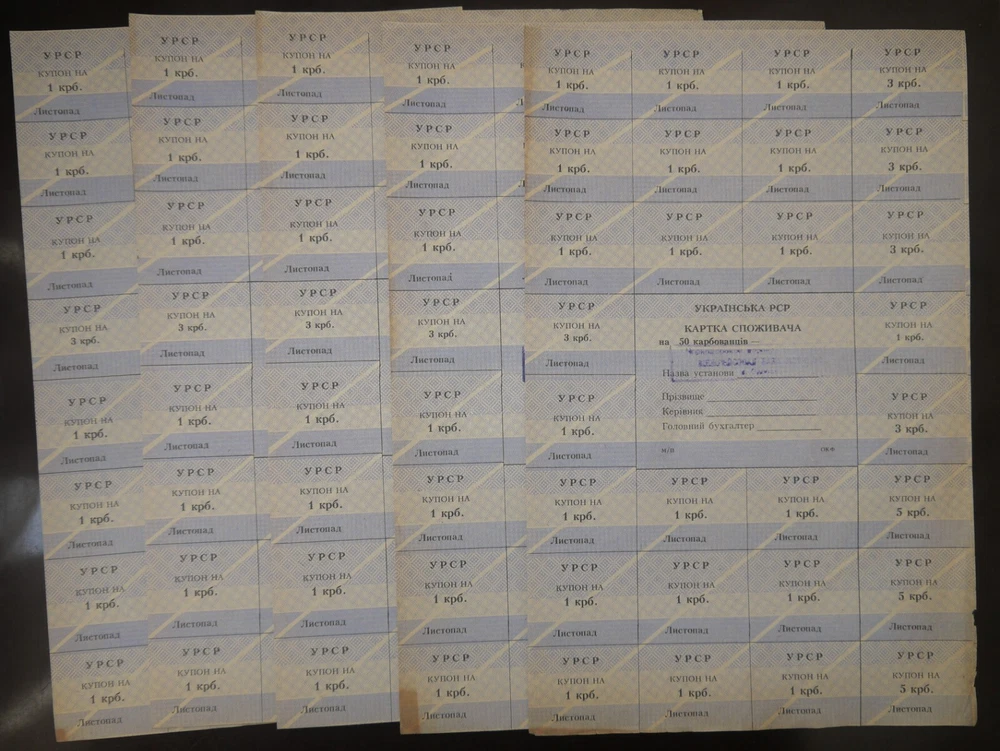 УРСР
КУПОН НА
1 крб.
Листопад
УРСР
КУПОН НА
1 крб.
Листопад
УРСР
КУПОН НА
1 крб.
Листопад
УРСР
КУПОН НА
3 крб.
Листопад
УРСР
КУПОН НА
1 крб.
Листопад
УРСР
КУПОН НА
1 крб.
Листопад
УРСР
КУПОН НА
1 крб.
Листопад
УРСР
КУПОН НА
1 крб.
Листопад
УРСР
КУПОН НА
1 крб.
Листопад
УРСР
КУПОН НА
1 крб.
Листопад
УРСР
КУПОН НА
1 крб.
Листопад
УРСР
КУПОН НА
3 крб.
Листопад
УРСР
КУПОН НА
1 крб.
Листопад
УРСР
КУПОН НА
1 крб.
Листопад
УРСР
КУПОН НА
1 крб.
Листопад
УРСР
КУПОН НА
1 крб.
Листопад
УРСР
КУПОН НА
1 крб.
Листопад
УРСР
КУПОН НА
1 крб.
Листопад
УРСР
КУПОН НА
1 крб.
Листопад
УРСР
КУПОН НА
3 крб.
Листопад
УРСР
КУПОН НА
1 крб.
Листопад
УРСР
КУПОН НА
1 крб.
Листопад
УРСР
КУПОН НА
1 крб.
Листопад
УРСР
КУПОН НА
1 крб.
Листопад
УРСР
КУПОН НА
1 крб.
Листопад
УРСР
КУПОН НА
1 крб.
Листопад
УРСР
КУПОН НА
1 крб.
Листопад
УРСР
КУПОН НА
3 крб.
Листопад
УРСР
КУПОН НА
1 крб.
Листопад
УРСР
КУПОН НА
1 крб.
Листопад
УРСР
КУПОН НА
1 крб.
Листопад
УРСР
КУПОН НА
1 крб.
Листопад
УРСР УРСР УРСР УРСР
КУПОН НА КУПОН НА КУПОН НА КУПОН НА
1 крб. 1 крб. 1 крб. 3 крб.
Листопад Листопад Листопад Листопад
УРСР УРСР УРСР УРСР
КУПОН НА КУПОН НА КУПОН НА КУПОН НА
1 крб. 1 крб. 1 крб. 3 крб.
Листопад Листопад Листопад Листопад
УРСР УРСР УРСР УРСР
КУПОН НА КУПОН НА КУПОН НА КУПОН НА
1 крб. 1 крб. 1 крб. 3 крб.
Листопад Листопад Листопад Листопад
УРСР
КУПОН НА
3 крб.
Листопад
УРСР
КУПОН НА
1 крб.
Листопад
УКРАЇНСЬКА РСР
КАРТКА СПОЖИВАЧА
на 50 карбованців
Назва установи
Прізвище
Керівник
Головний бухгалтер
М/П
УРСР
КУПОН НА
1 крб.
Листопад
УРСР
КУПОН НА
3 крб.
Листопад
УРСР УРСР УРСР УРСР
КУПОН НА КУПОН НА КУПОН НА КУПОН НА
1 крб. 1 крб. 1 крб. 5 крб.
Листопад Листопад Листопад Листопад
УРСР УРСР УРСР УРСР
КУПОН НА КУПОН НА КУПОН НА КУПОН НА
1 крб. 1 крб. 1 крб. 5 крб.
Листопад Листопад Листопад Листопад
УРСР УРСР УРСР УРСР
КУПОН НА КУПОН НА КУПОН НА КУПОН НА
1 крб. 1 крб. 1 крб. 5 крб.
Листопад Листопад Листопад Листопад